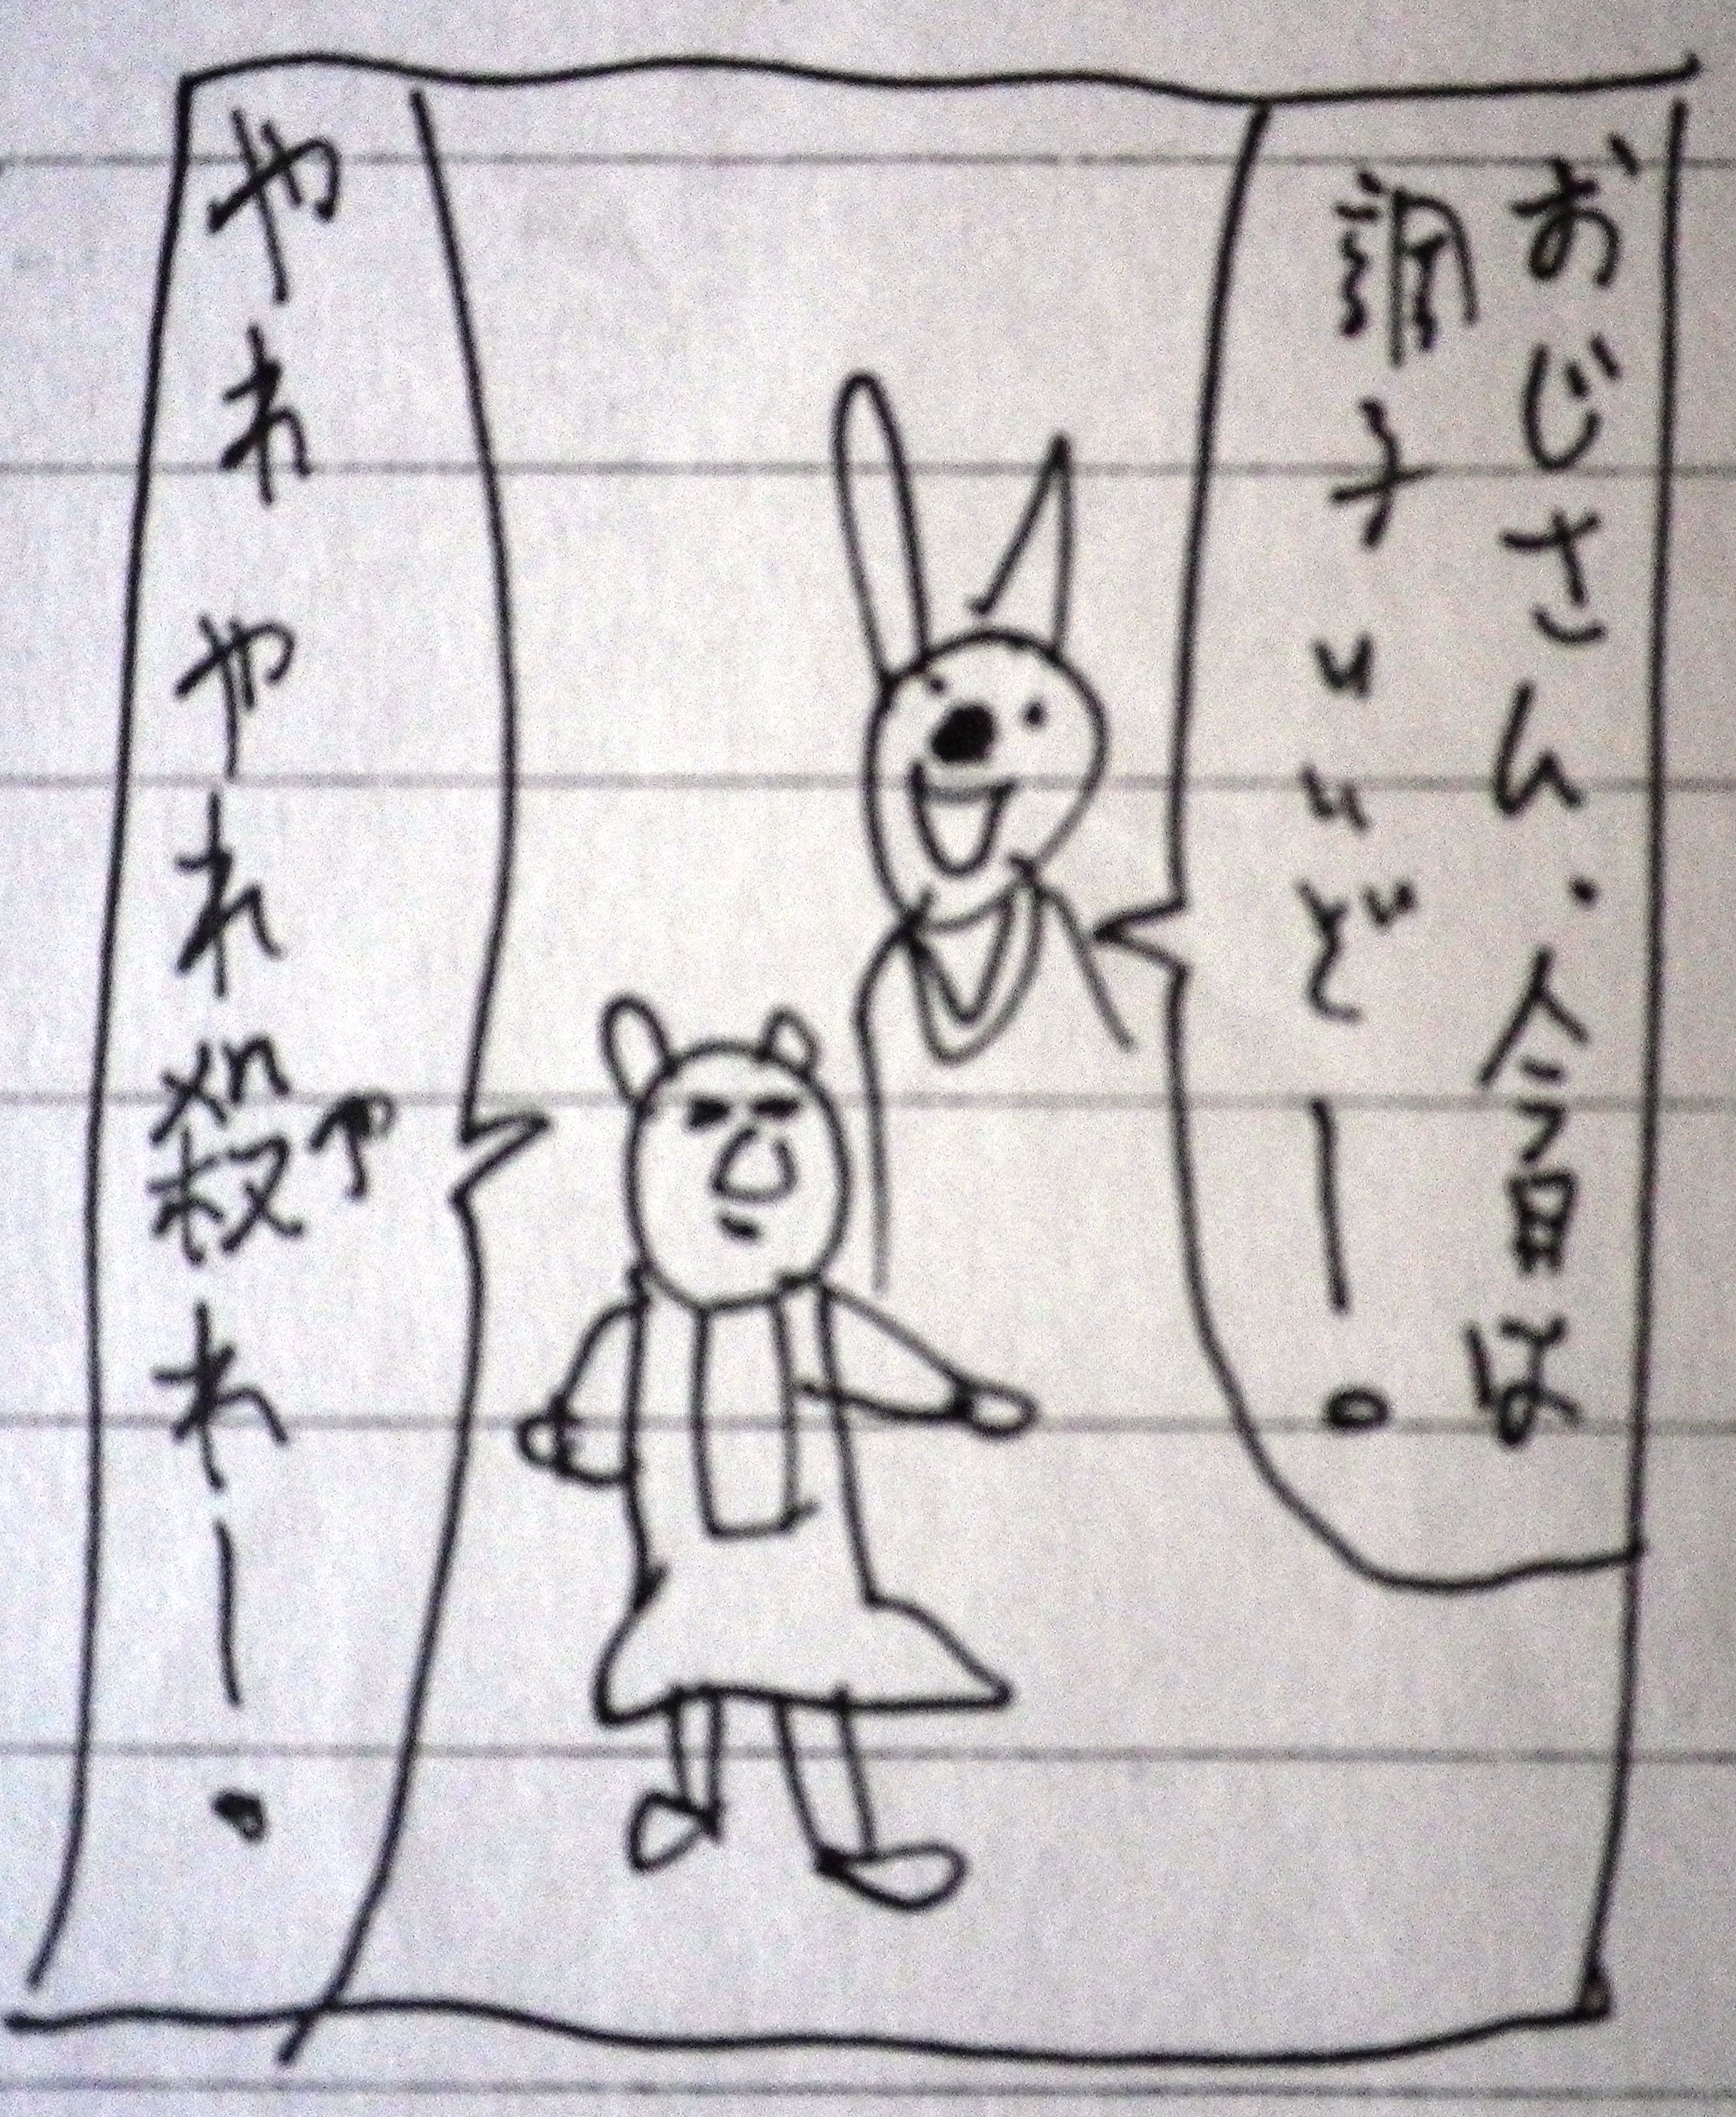 おじさん・今日は
調子いいどー。
やれやれ殺やれー。